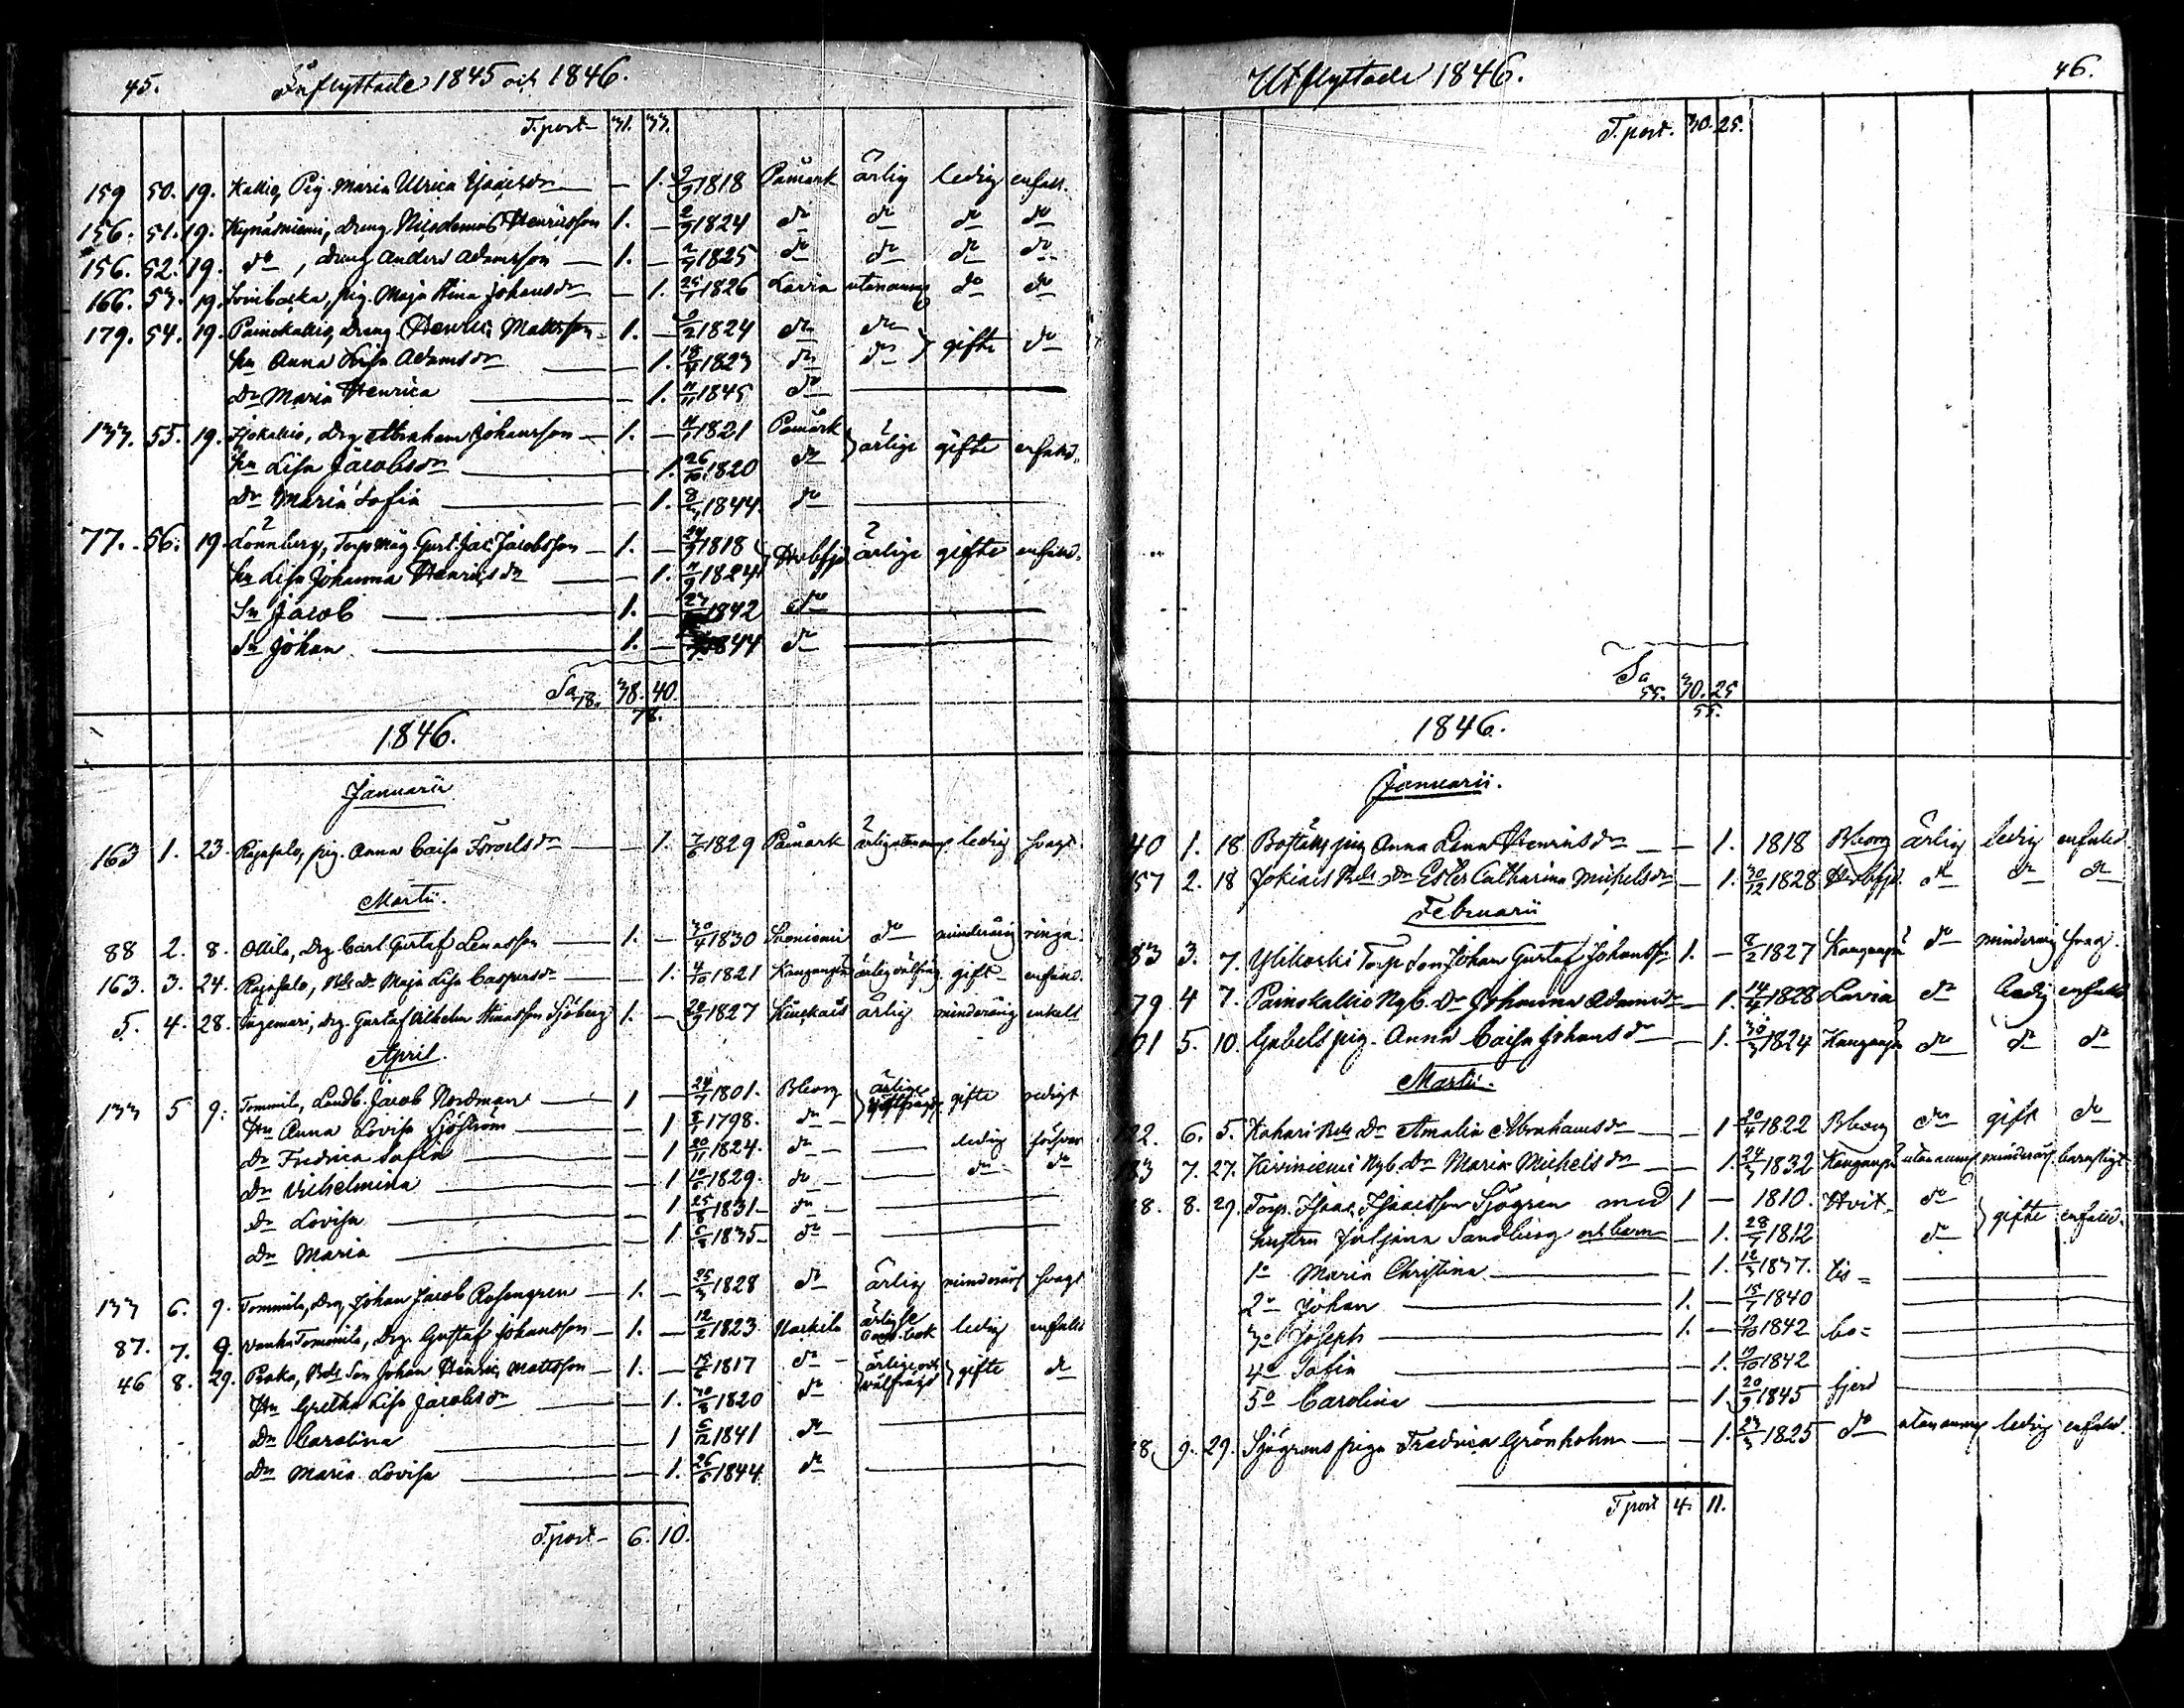 45. Inflyttade 1845 och 1846.
T. port 31. 37.
159 50. 19. Kallio, Pig. Maria Ulrica Isaacsdr — 1. 1818 Påmark ärlig ledig enfald.
156. 51. 19. Kynäsniemi, dräng Nicodemus Henricsson 1. — 1824 do do do do
156. 52. 19. do, dräng Anders Adamsson 1. — 1825 do do do do
166. 53. 19. pig. Maja Stina Johansdr — 1. 25/1 1826 Lavia utan anm do do
179. 54. 19. Painokallio, Dräng Henric Mattsson 1. — 1824 do do gifte do
hu Anna Lisa Adamsdr — 1. 18/4 1823 do do
Dr Maria Henrica — 1. 11/11 1845 do
133. 55. 19. Isokallio, Drg Abraham Johansson 1. — 1821 Påmark ärlige gifte enfald.
hu Lisa Jacobsdr — 1. 26/10 1820 do
Dr Maria Sofia — 1. 1844. do
77. 56. 19. Lönnberg, Torp måg Gust. Jac. Jacobsson 1. — 1818 Hvbfjd ärlige gifte enfald.
hu Lisa Johanna Henricsdr — 1. 11/9 1824
Sn Jacob 1. — 1842 do
Sn Johan 1. — 1844 do
Sa 78. 38. 40.
78.
1846.
Januarii
163 1. 23. Rajasalo, pig. Anna Caisa Israelsdr — 1. 7/6 1829 Påmark ärlig utan anm. ledig svagt.
Martii.
88 2. 8. Ollila, Drg. Carl Gustaf Lenasson 1. — 30/4 1830 Suoniemi do minderårig ringa.
163. 3. 24. Rajasalo, Bds Dr Maja Lisa Caspersdr — 1. 4/10 1821 Kangasnpä ärlig välfräjd gift enfald.
5. 4. 28. Ingemari, drg. Gustaf Vilhelm Sjöberg 1. — 1827 Kiuckais ärlig minderårig enkelt
April.
133 5 9. Tommila, Landb. Jacob Nordman 1 — 24/7 1801. Bborg ärlige gifte redigt
Hu Anna Lovisa Sjöström — 1 1798. do
Dr Fredrica Sofia — 1 20/11 1824. do ledig försvar
Dr Vilhelmina — 1 1829. do do do
Dr Lovisa — 1 25/8 1831 do
Dr Maria — 1 6/8 1835 do
133 6. 9. Tommila, Drg. Johan Jacob Rosengren 1. — 25/3 1828 do ärlig minderårig svagt
87. 7. 9. Vanha Tommila, Drg. Gustaf Johansson 1. — 12/2 1823. Nackila ärlig ledig enfald
46 8. 29. Penka, Bds Son Johan Henric Mattsson 1. — 15/6 1817 do ärlige och välfräjd gifte do
Hu Gretha Lisa Jacobsdr — 1. 30/8 1820 do
Dr Carolina 1 6/12 1841 do
Dr Maria Lovisa — 1. 26/6 1844. do
T. port 6. 10.
Utflyttade 1846. 46.
T. port. 30. 25.
Sa 55. 30. 25
55.
1846.
Januarii.
40 1. 18 pig Anna Lena Henricsdr — 1. 1818 Bborg ärlig ledig enfald.
57 2. 18 Jokiais Bds Dr Ester Catharina Michelsdr — 1. 30/12 1828 Hvbfjd. do do do
Februarii
83 3. 7. Ylikoski Torp Son Johan Gustaf Johansson 1. — 8/2 1827 Kangasnpä do minderårig svag.
79 4 7. Painokallio Nyb. Dr Johanna Adamsdr — 1. 14/4 1828 Lavia do ledig enfald
01 5. 10. Gabels pig. Anna Caisa Johansdr — 1. 30/3 1824 Kangasnpä do do do
Martii.
22. 6. 5. Kahari Bds Dr Amalia Abrahamsdr — 1 20/4 1822 Bborg do gift do
33 7. 27. Kiviniemi Nyb. Dr Maria Michelsdr — 1. 24/3 1832 Kangasnpä utan anm minderårig
8. 8. 29. Torp. Isaac Isaacsson Sjögren med 1 — 1810. Hvit- do gifte enfald.
hustru Juljana Sandberg och barn — 1. 28/7 1812 do
1o Maria Christina — 1. 12/3 1837. tis =
2o Johan 1. — 15/7 1840
3o Joseph 1. — 19/10 1842 bo =
4o Sofia — 1. 19/10 1842
5o Carolina — 1. 20/9 1845 fjerd
8. 9. 29. Sjögrens piga Fredrica Grönholm — 1. 23/3 1825 do utan anm ledig enfald.
T port 4. 11.